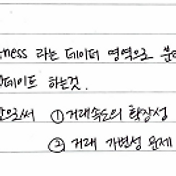 ness 라는 데이터 영역으로 분
데이트 하는것.
으로써 ① 거래속도의 확장성
② 거래 가변성 문제